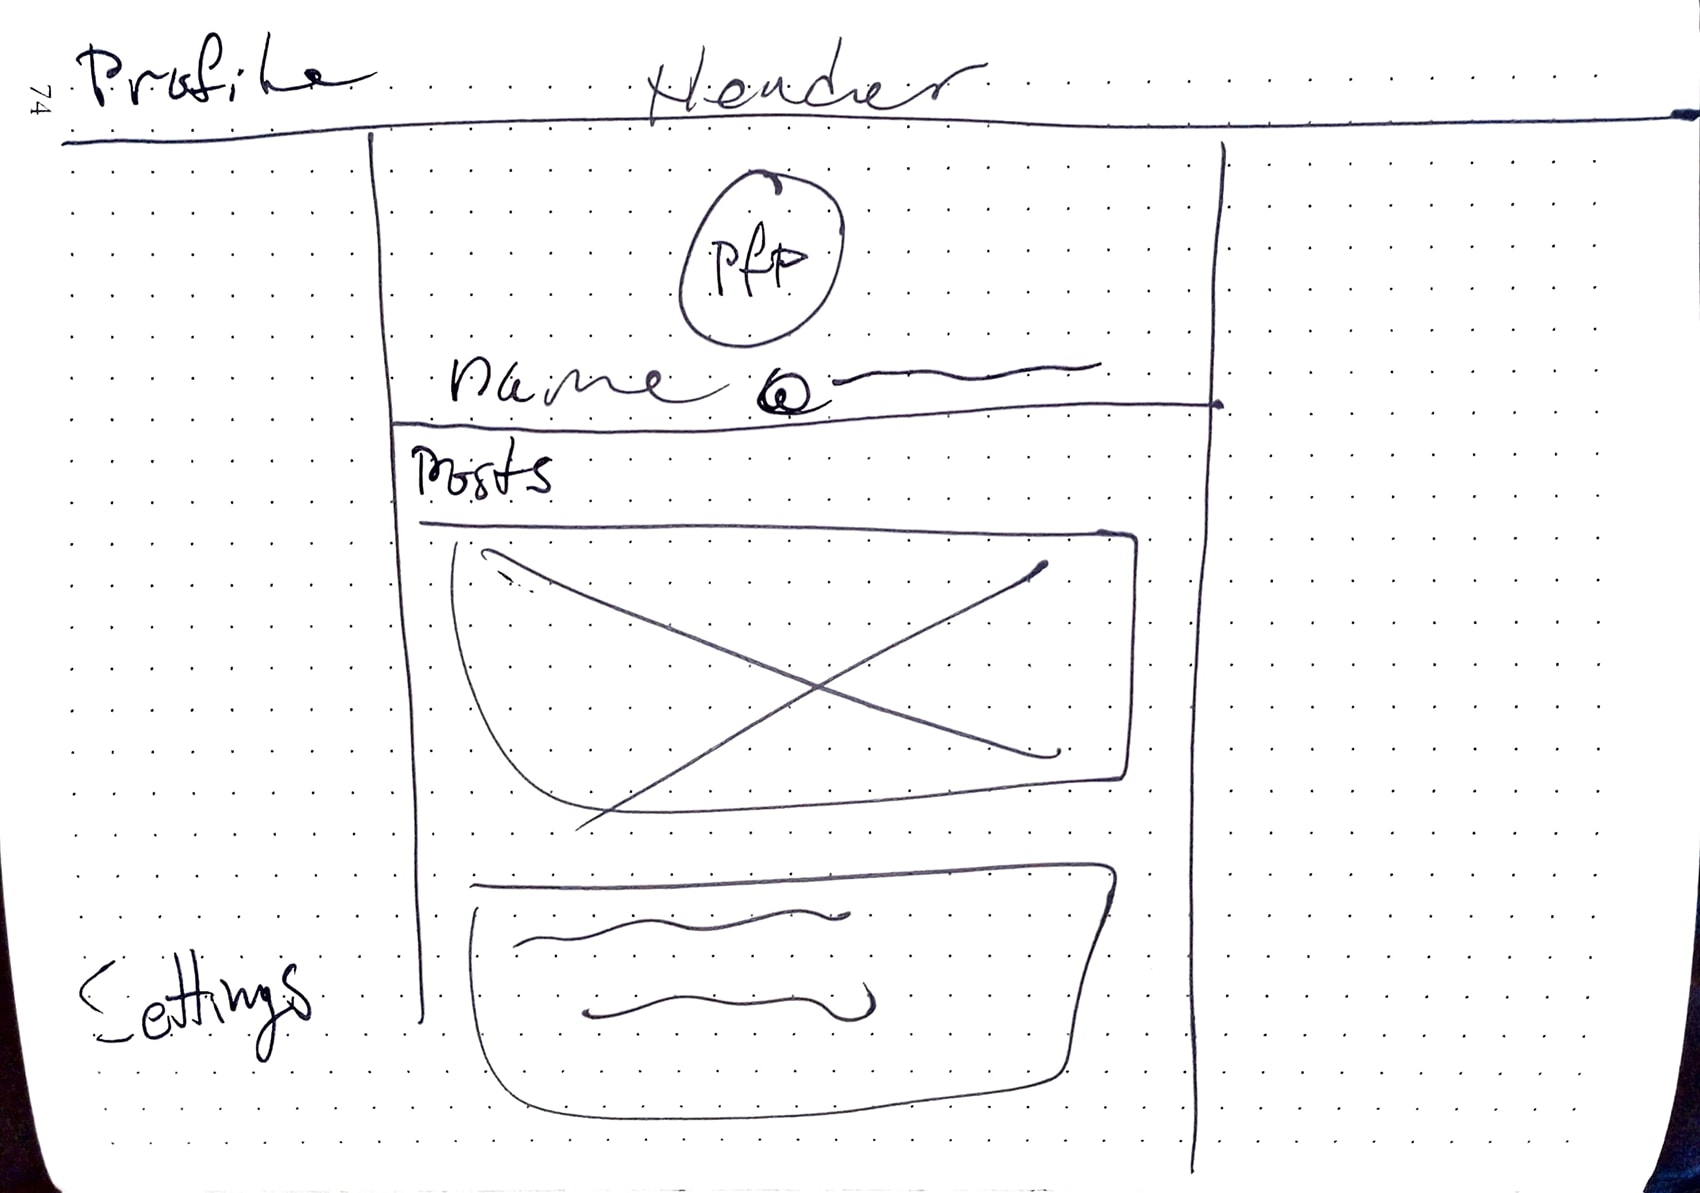 74
Profile Header
pfp
name @
Posts
Settings